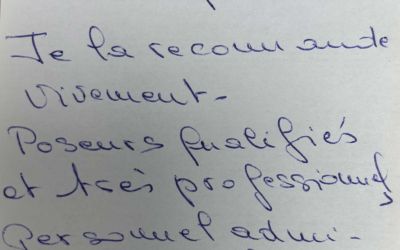 Je la recommande
vivement-
Poseurs qualifiés
et très professionnels
Personnel admi-